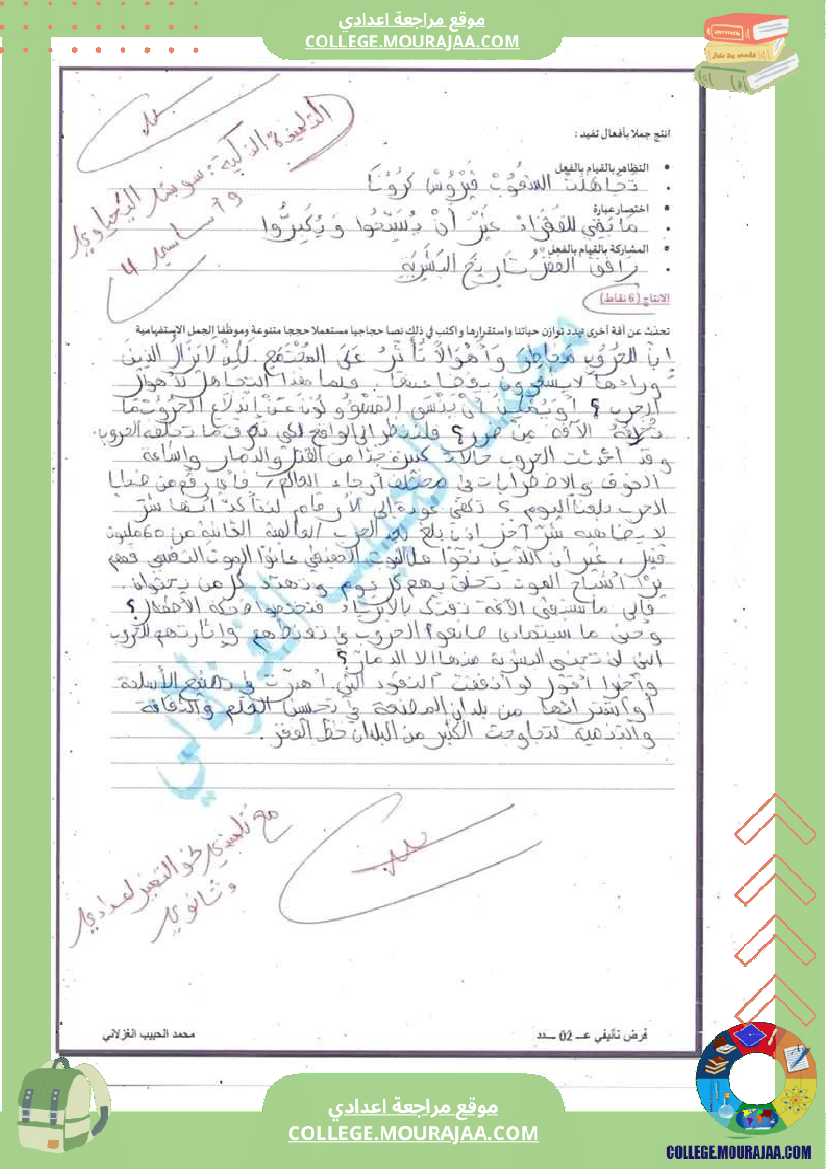 موقع مراجعة اعدادي
COLLEGE.MOURAJAA.COM
التلميذة الذكية: سوسن اليحياوي
9 أساسي 4
انتج جملا بأفعال تفيد :
• التظاهر بالقيام بالفعل
تجاهلت الشعوب فيروس كرونا
• اختصار عبارة
ما بقي للفقراء غير أن يسبحوا ويكبروا
• المشاركة بالقيام بالفعل
رافق الفقر تاريخ البشرية
الانتاج (6 نقاط)
تحدث عن آفة أخرى تهدد توازن حياتنا واستقرارها واكتب في ذلك نصا حجاجيا مستعملا حججا متنوعة وموظفا الجمل الاستفهامية
ان للحروب مخاطر وأهوالا تأثر على المجتمع لكن لا نزال الذين
وراءها لا يشعرون بفضاعتها . فلما هذا التجاهل لأهوال
الحرب ؟ أو يمكن أن ينسى المسؤولون عن اندلاع الحروب ما
تخلفه الآفة من ضرر ؟ فلننظر الى الواقع لكي نعرف ما تخلفه الحروب.
وقد أحدثت الحروب حالات كثيرة جدا من القتل والدمار واشاعة
الخوف والاضطرابات في مختلف أرجاء العالم، فأي رقم من ضحايا
الحرب بلغنا اليوم ؟ تكفي عودة إلى الأرقام لنتأكد أنها شر
لا يضاهيه شر آخر اذ بلغ بعد الحرب العالمية الثانية من 60 مليون
قتيل ، غير أن اللذين نجوا من الموت الحقيقي عانوا الموت النفسي فهم
يرا أشباح الموت تحلق بهم كل يوم وتهدد كل من يحبون
فإلى ما ستبقى الآفة تفتك بالأبرياء فتخطف ضحكة الأطفال ؟
وحتى ما سيتمادى صانعوا الحروب في تفريطهم وإثارتهم للحروب
التي لن تجني البشرية منها الا الدمار ؟
وأخيرا أقول لو أنفقت النقود التي أهدرت في تصنيع الأسلحة
أو اشترائها من بلدان المصنعة في تحسين العلم والثقافة
والتنمية لتجاوزت الكثير من البلدان خط الفقر
مع تلميذي نحو التميز اعدادي
وثانوي
محمد الحبيب الغزلاني
فرض تأليفي عـ 02 ـدد
محمد الحبيب الغزلاني
موقع مراجعة اعدادي
COLLEGE.MOURAJAA.COM
COLLEGE.MOURAJAA.COM